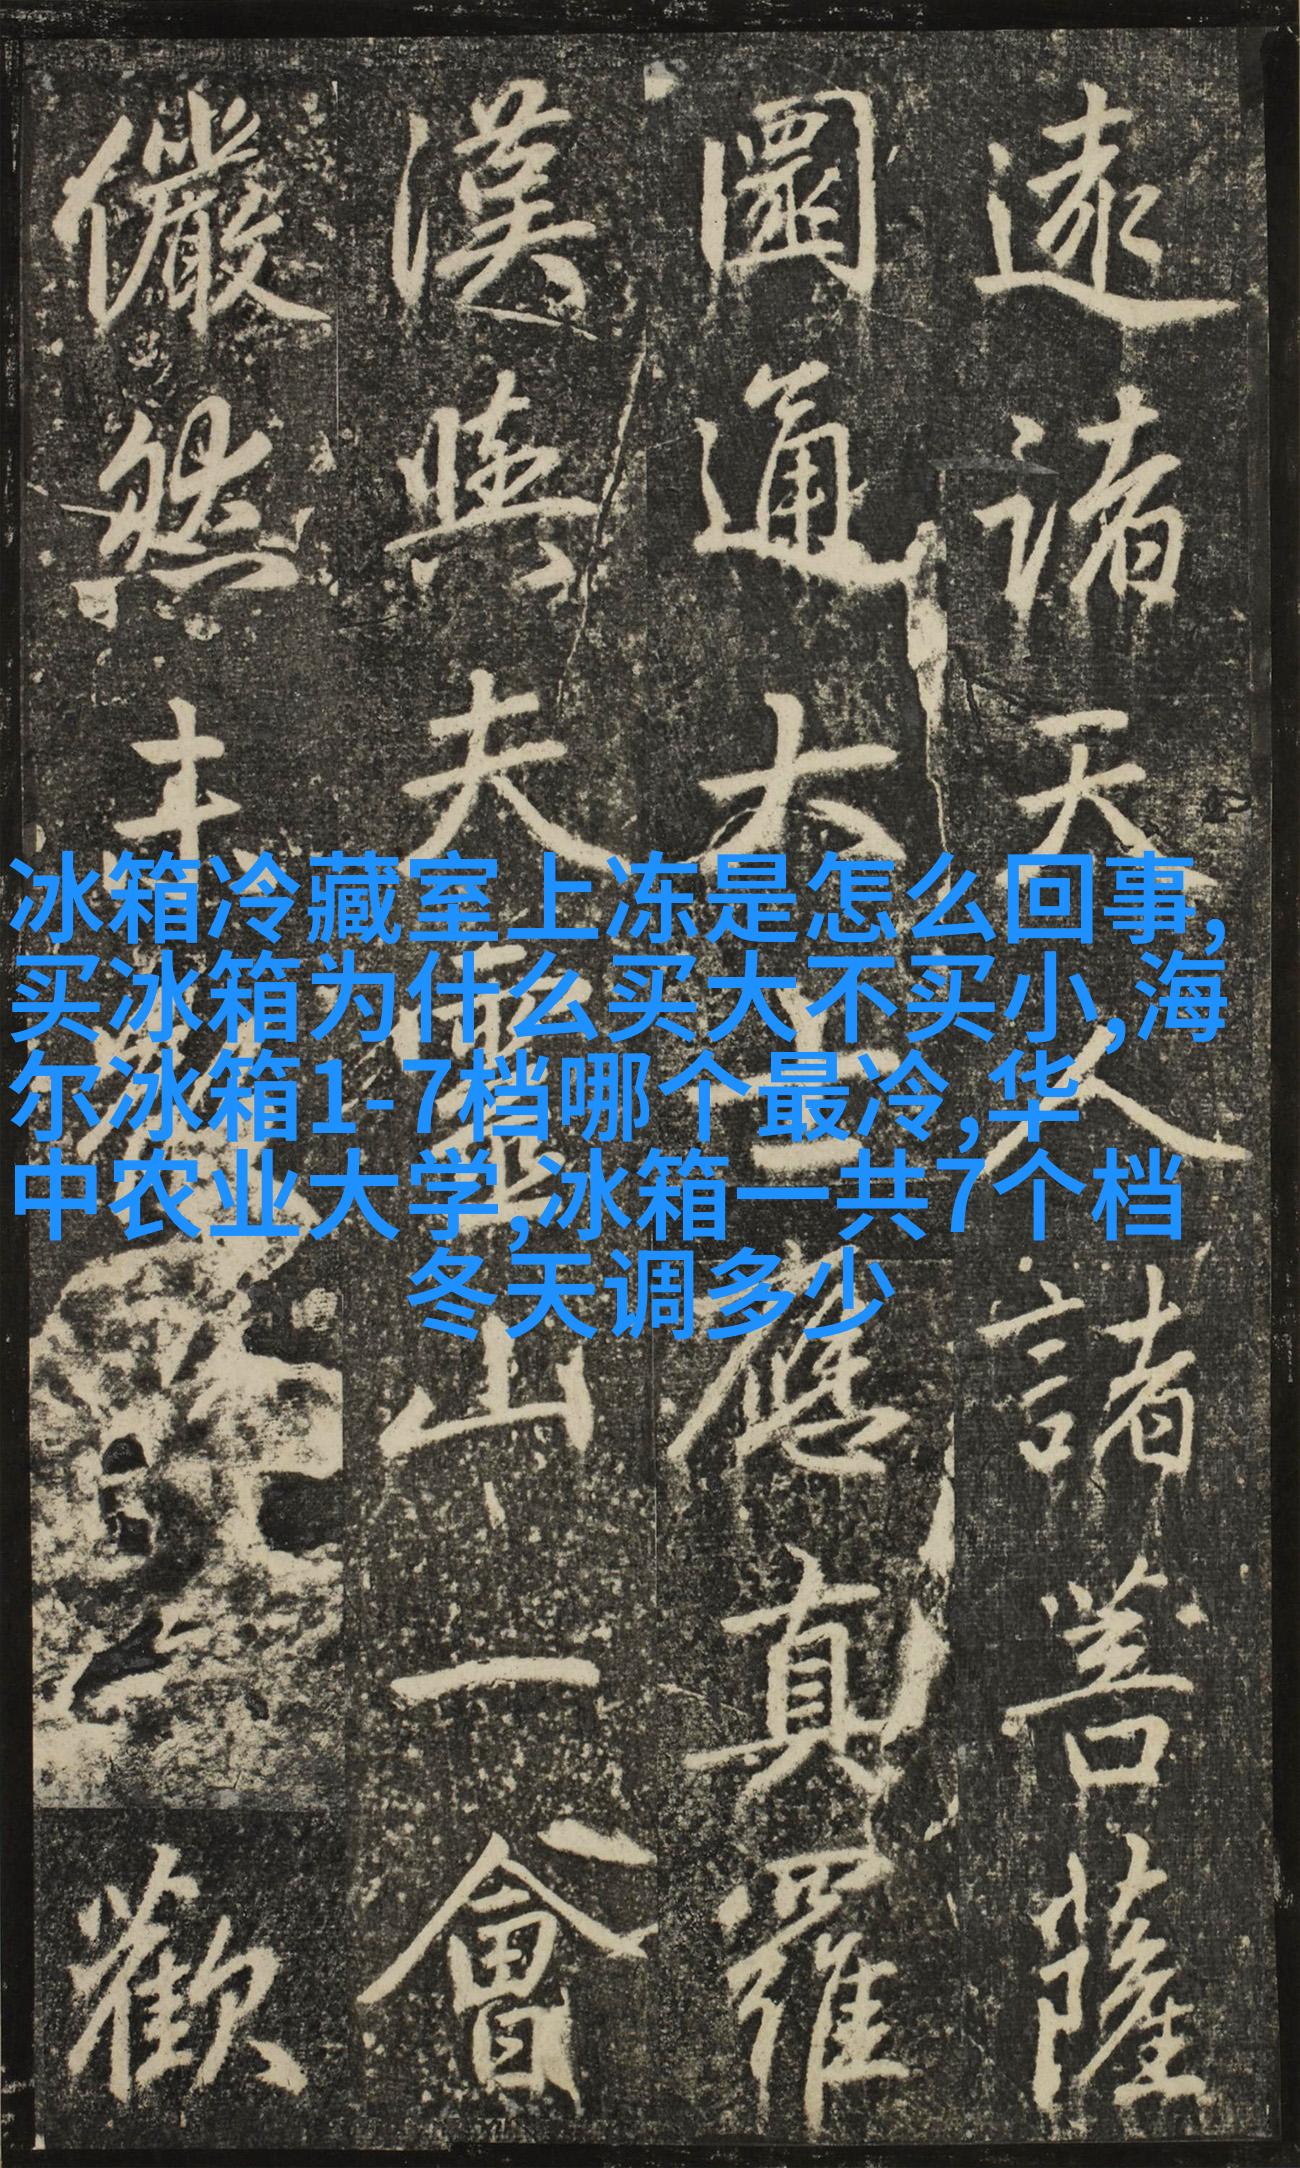 遠諸天人諸菩薩
圜通大士應真羅
漢與夫靈山一會
儼然未
歡
冰箱冷藏室上冻是怎么回事,
买冰箱为什么买大不买小,海
尔冰箱1-7档哪个最冷,华
中农业大学,冰箱一共7个档
冬天调多少